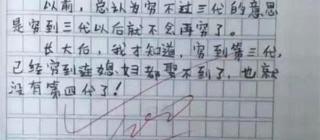 以前，总认为穷不过三代的意思
是穷到三代以后就不会再穷了。
长大后，我才知道，穷到第三代，
已经穷到连媳妇都娶不到了，也就
没有第四代了！